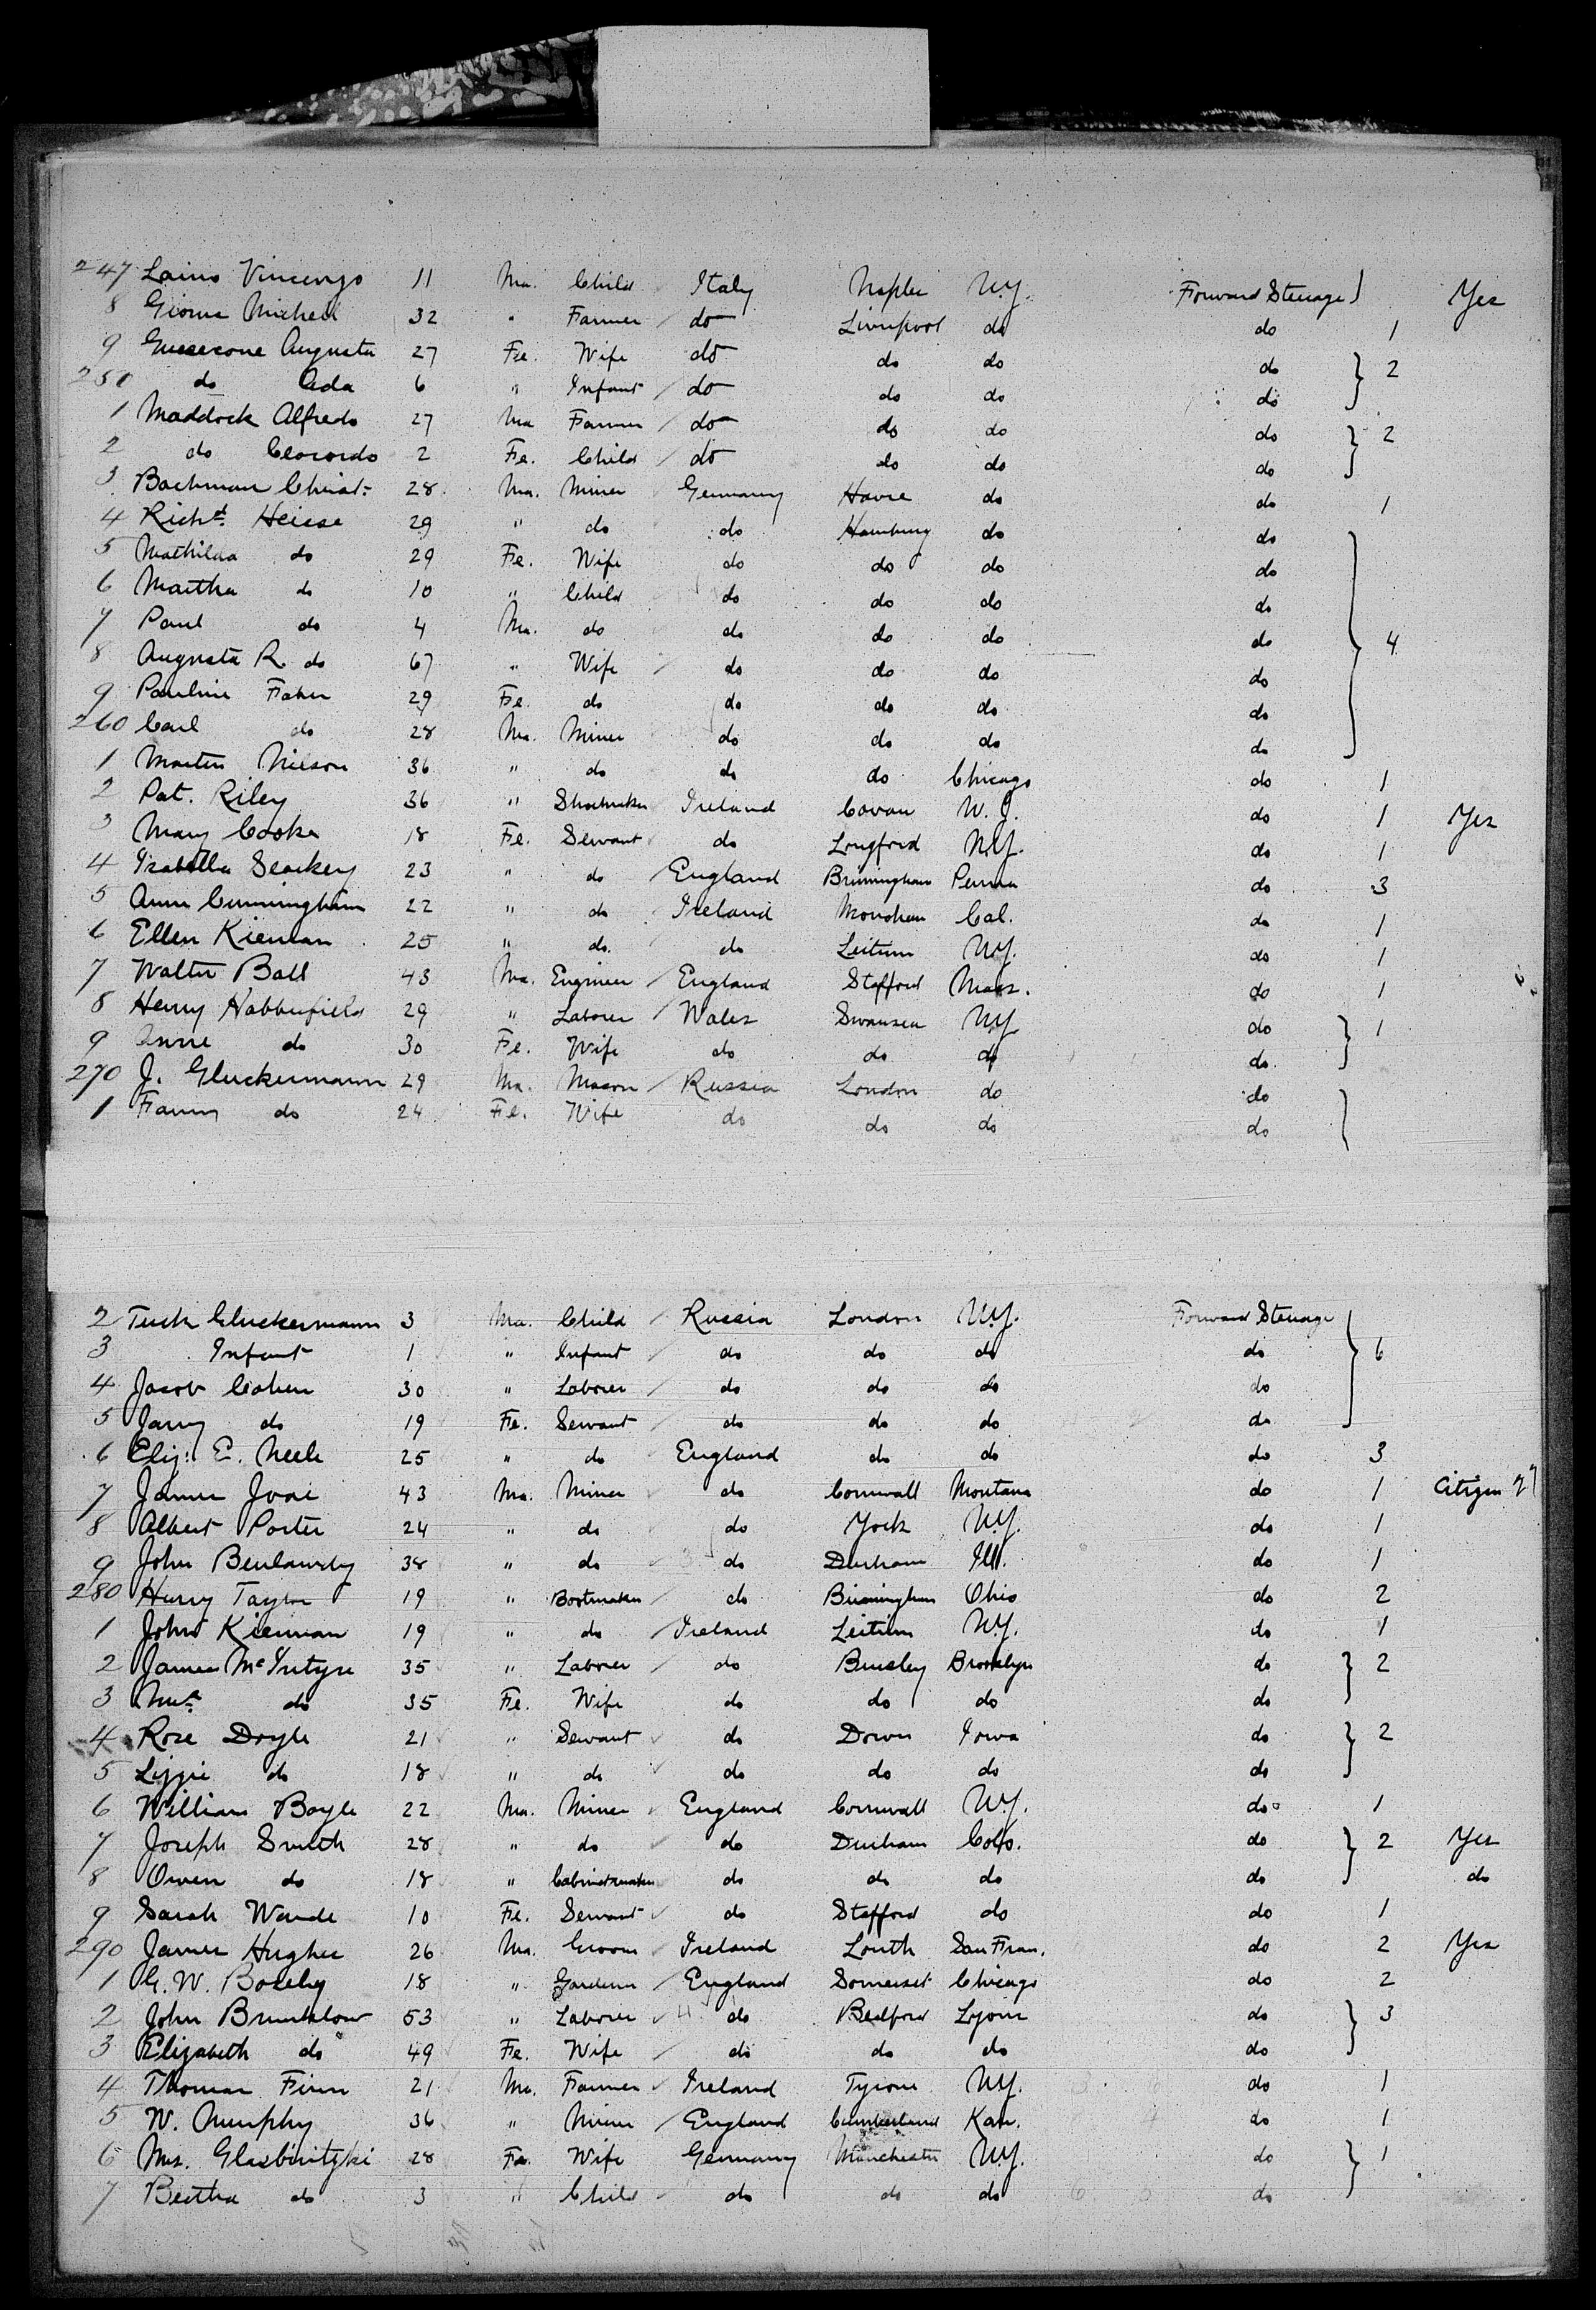 247 Laino Vincenzo 11 Ma. Child Italy Naples N.Y. Forward Steerage } Yes
8 Michele 32 " Farmer do Liverpool do do 1
9 Augusta 27 Fe. Wife do do do do } 2
250 do Ada 6 " Infant do do do do
1 Maddock Alfredo 27 Ma Farmer do do do do } 2
2 do 2 Fe. Child do do do do
3 Bachman Christ. 28 Ma. Miner Germany Havre do do 1
4 Richd. Heisse 29 " do do Hamburg do do }
5 Mathilda do 29 Fe. Wife do do do do
6 Martha do 10 " Child do do do do
7 Paul do 4 Ma. do do do do do 4
8 Augusta R. do 67 " Wife do do do do
9 Pauline Faher 29 Fe. do do do do do
260 Carl do 28 Ma. Miner do do do do
1 Martin Nilson 36 " do do do Chicago do 1
2 Pat. Riley 36 " Shoemaker Ireland Cavan N.J. do 1 Yes
3 Mary Cooke 18 Fe. Servant do Longford N.Y. do 1
4 Isabella 23 " do England Birmingham Penna do 3
5 Ann Cunningham 22 " do Ireland Monohan Cal. do 1
6 Ellen Kiernan 25 " do do Leitrim N.Y. do 1
7 Walter Ball 43 Ma. Engineer England Stafford Mass. do 1
8 Henry Habberfield 29 " Laborer Wales Swansea N.Y do } 1
9 Anne do 30 Fe. Wife do do do do
270 J. Gluckermann 29 Ma. Mason Russia London do do }
1 Fanny do 24 Fe. Wife do do do do
2 Tuck Gluckermann 3 Ma. Child Russia London N.Y. Forward Steerage }
3 Infant 1 " Infant do do do do 6
4 Jacob Cohen 30 " Laborer do do do do
5 Janny do 19 Fe. Servant do do do do
6 Eliz. E. Neele 25 " do England do do do 3
7 James 43 Ma. Miner do Cornwall Montana do 1 Citizen
8 Albert Porter 24 " do do York N.Y. do 1
9 John 38 " do do Durham Ill. do 1
280 Harry Taylor 19 " Bootmaker do Birmingham Ohio do 2
1 John Kiernan 19 " do Ireland Leitrim N.Y. do 1
2 James McIntyre 35 " Laborer do Brooklyn do } 2
3 Mrs. do 35 Fe. Wife do do do do
4 Rose Doyle 21 " Servant do Down Iowa do } 2
5 Lizzie do 18 " do do do do do
6 William Boyle 22 Ma. Miner England Cornwall N.Y. do 1
7 Joseph Smith 28 " do do Durham Colo. do } 2 Yes
8 Owen do 18 " Cabinetmaker do do do do do
9 Sarah Wande 10 Fe. Servant do Stafford do do 1
290 James Hughes 26 Ma. Groom Ireland Louth San Fran. do 2 Yes
1 G. W. Boseley 18 " Gardener England Somerset Chicago do 2
2 John Brunklow 53 " Laborer do Bedford Lyons do } 3
3 Elizabeth do 49 Fe. Wife do do do do
4 Thomas Finn 21 Ma. Farmer Ireland Tyrone N.Y. do 1
5 W. Murphy 36 " Miner England Cumberland Kan. do 1
6 Mrs. Glasbinitzki 28 Fe. Wife Germany Manchester N.Y. do } 1
7 Bertha do 3 " Child do do do do